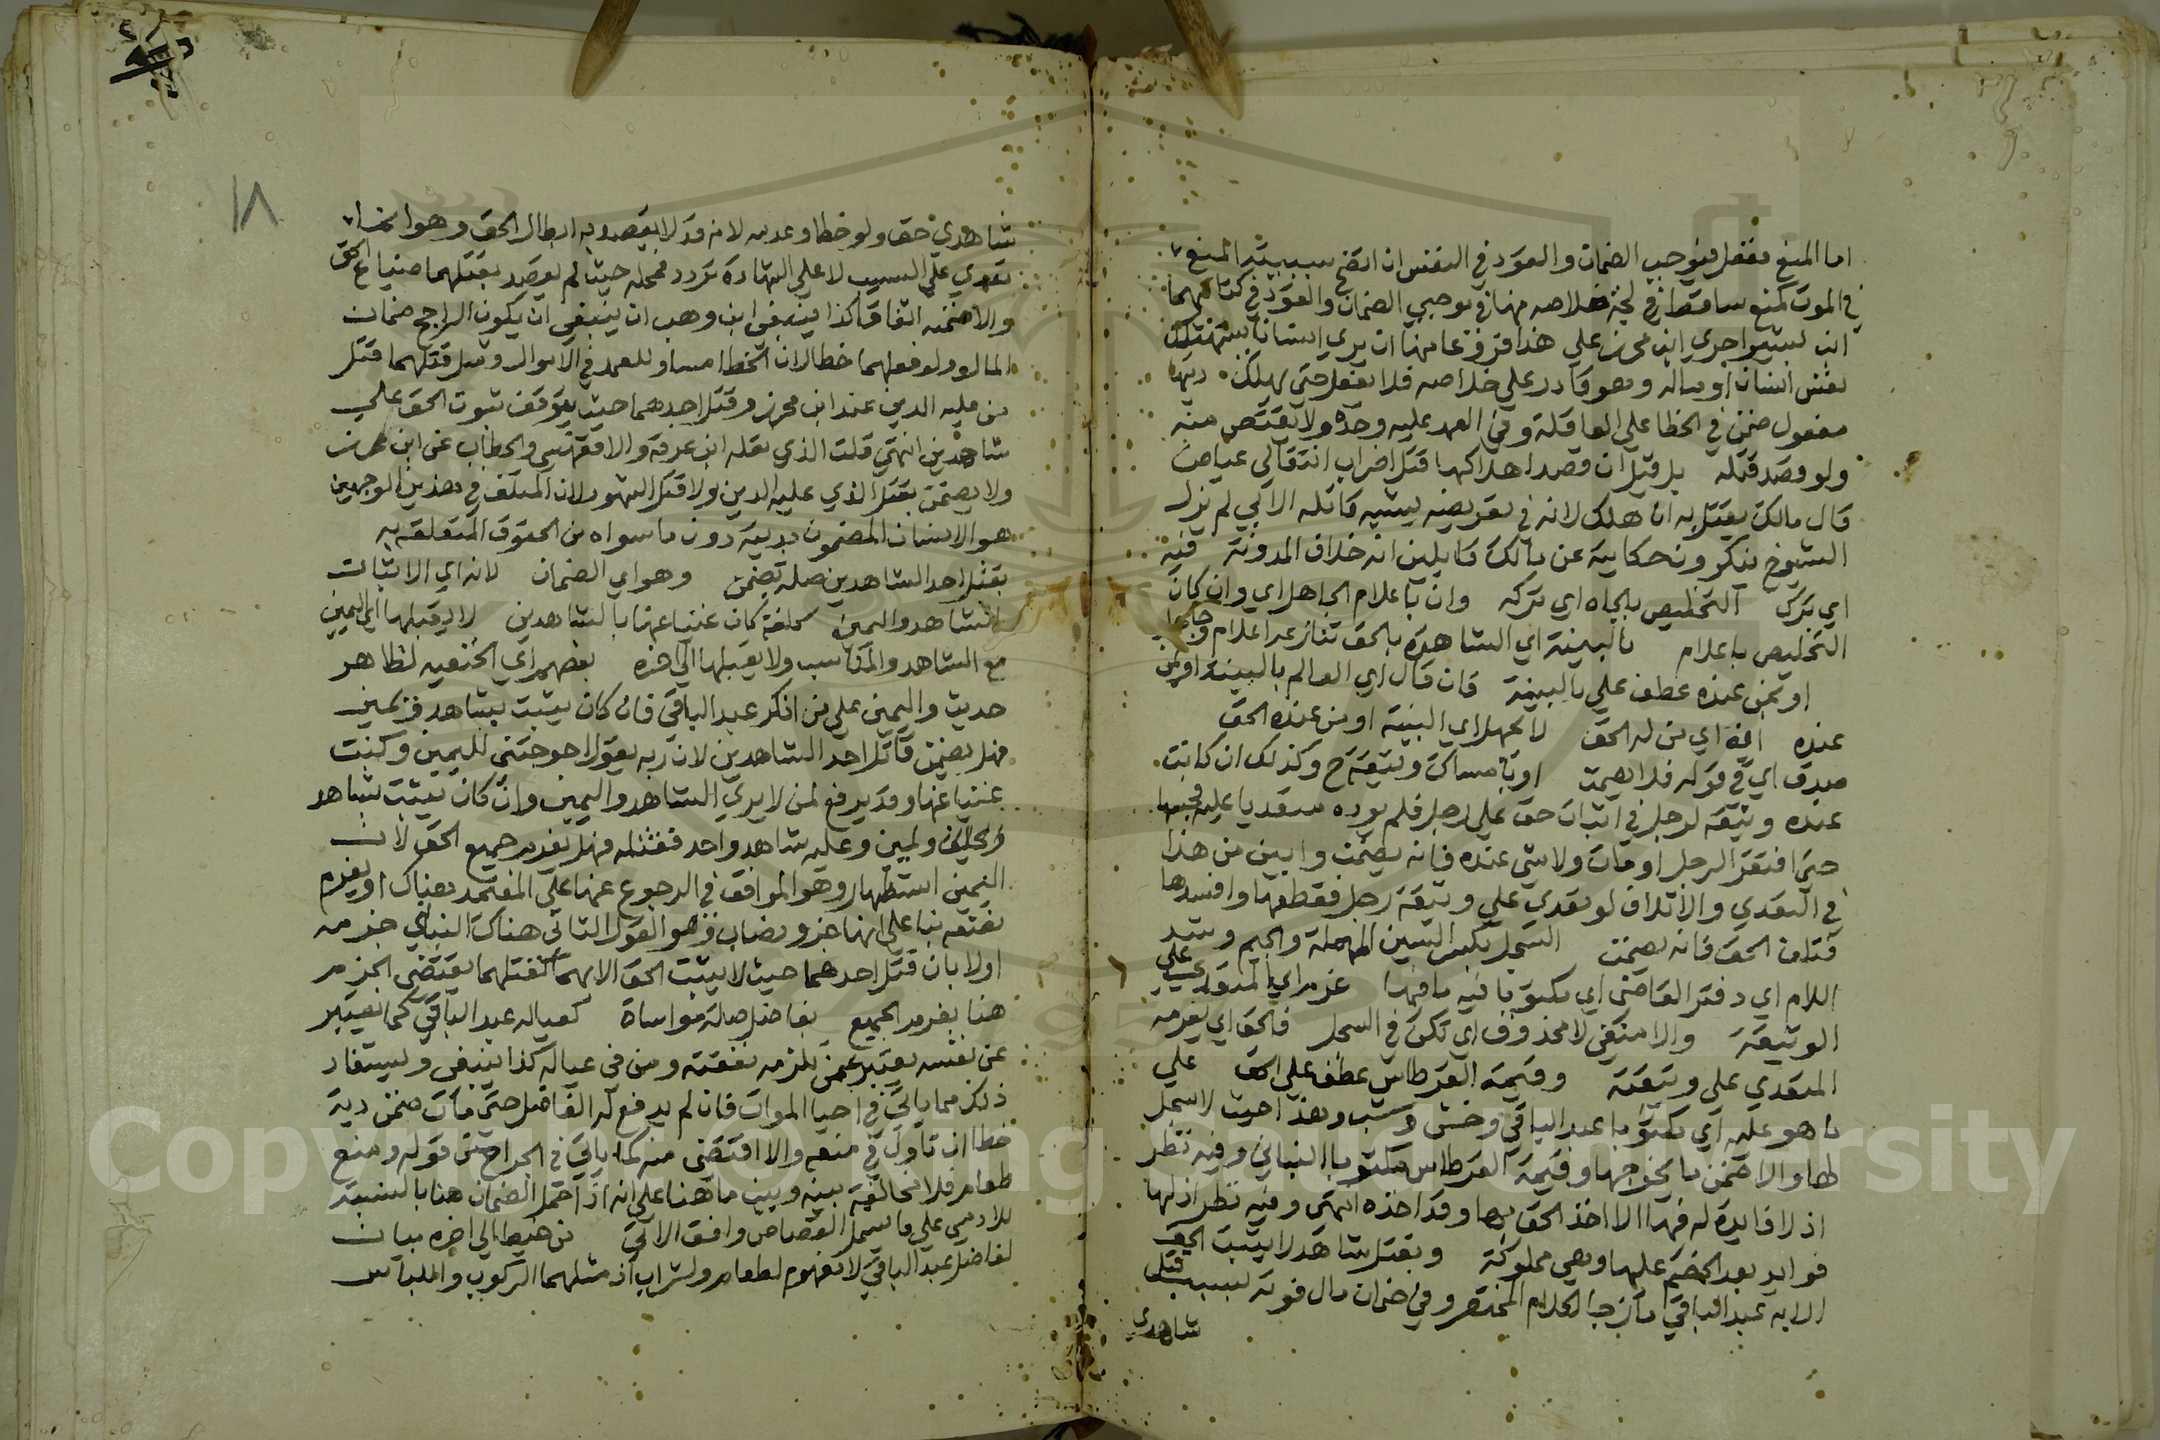 اما المنع ففعل فيوجب الضمان والقود في النفس ان اتضح سببيته المنع
في الموت كمنع ساقط في لجة خلاصه منها في توجبي الضمان والقود في كتابيهما
ابن بشير واجري ابن محرز علي هذا فرعا منها ان يري انسانا يستهلك
نفس انسان او ماله وهو قادر علي خلاصه فلا يفعل حتي يهلك ديتها
مفعول ضمن في الخطا علي العاقلة وفي العمد عليه وحده ولا يقتص منه
ولو قصد قتله بل قيل ان قصد اهلاكها قتل
قال مالك يقتل به ان هلك لانه في تعريضه يشبه قاتله الابي لم نزل
الشيوخ ينكرون حكايته عن مالك قايلين انه خلاف المدونة فيه
اي ترك التخليص بالجاه اي تركه وان باعلام الجاهل اي وان كان
التخليص باعلام بالبينة اي الشاهدة بالحق تنازعه اعلام وجاهلها
او بمن عنده عطف علي بالبينة فان قال اي العالم بالبينة او بمن
عنده انه اي من له الحق لا يجهل اي البينة او من عنده الحق
صدق اي في قوله فلا يضمن او بامساك وثيقة ح وكذلك ان كانت
عنده وثيقة لرجل في اثبات حق علي رجل فلم يورده متعديا عليه فحبسها
حتي افتقر الرجل او مات ولا شي عنده فانه يضمن وابين من هذا
في التعدي والاتلاف لو تعدي علي وثيقة رجل فقطعها وافسدها
فتلف الحق فانه يضمن السجل بكسر السين المهملة والجيم وشد
اللام اي دفتر القاضي اي مكتوبا فيه ما فيها غرم اي المتعدي علي
الوثيقة والا منفي لا محذوف اي تكن في السجل فالحق اي يغرمه
المتعدي علي وثيقته وقيمة القرطاس عطف علي الحق علي
ما هو عليه اي مكتوبا عبد الباقي وخش وشب وهذا حيث لا سجل
لها والا ضمن ما يخرجها وقيمة القرطاس مكتوبا البناني وفيه نظر
اذ لا فايدة له فيها الا اخذ الحق بها وقد اخذه انتهي وفيه نظر اذ لها
فوايد بعد الخصم عليها وهي مملوكة وبقتل شاهد لا يثبت الحق
الا به عبد الباقي مازجا لكلام المختصر وفي ضمان مال فوته بسبب قتل
شاهدي
١٨
شاهدي حق ولو خطا وعدمه لانه قد لا يقصد به ابطال الحق وهو انما
تعدي علي السبب لا علي الشهادة تردد محله حيث لم يقصد بقتلهما ضياع الحق
والا ضمنه اتفاقا كذا ينبغي ابن وهب ان ينبغي ان يكون الراجح ضمان
المال ولو فعلهما خطا لان الخطا مساو للعمد في الاموال ومثل قتلهما قتل
من عليه الدين عند ابن محرز وقتل احدهما حيث يتوقف ثبوت الحق علي
شاهدين انتهي قلت الذي نقله ابن عرفة والاقفهسي والحطاب عن ابن محرز
ولا يضمن بقتل الذي عليه الدين ولا قتل الشهود لان المتلف في هذين الوجهين
هو الانسان المضمون بديته دون ما سواه من الحقوق المتعلقة به
بقتل احد الشاهدين صلة تضمن وهو اي الضمان لانه اي الاثبات
بالشاهد واليمين كلفة كان غنيا عنها بالشاهدين لا يقبلها اي اليمين
مع الشاهد والمناسب ولا يقبلها الي اخره بعضهم اي الحنفية لظاهر
حديث واليمين علي من انكر عبد الباقي فان كان يثبت بشاهد ويمين
فهل يضمن قاتل احد الشاهدين لان ربه يقول احوجتني لليمين وكنت
غنيا عنها وقد يرفع لمن لا يري الشاهد واليمين وان كان يثبت بشاهد
ويمين وعليه شاهد واحد فقتله فهل يغرم جميع الحق لان
اليمين استظهار وهو الموافق في الرجوع عنها علي المعتمد هناك او يغرم
نصفه بناء علي انها جزء نصاب وهو القول الثاني هناك البناني جزمه
اولا بان قتل احدهما حيث لا يثبت الحق الا بهما كقتلهما يقتضي الجزم
هنا بغرم الجميع بفاضل صلة مواساة كعياله عبد الباقي كما يعتبر
عن نفسه يعتبر عمن تلزمه نفقته ومن في عياله كذا ينبغي ويستفاد
ذلك مما ياتي في احيا الموات فان لم يدفع له الفاضل حتي مات ضمن دية
خطا ان تاول في منعه والا اقتضي منه كما ياتي في الجراح من قوله ومنع
طعام فلا مخالفة بينه وبين ما هنا علي انه اذا حمل الضمان هنا بالنسبة
للادمي علي ما يشمل القصاص وافق الاتي من خيط الي اخره بيان
لفاضل عبد الباقي لا مفهوم لطعام ولشراب اذ مثلهما الركوب والملباس
Copyright © King Saud University